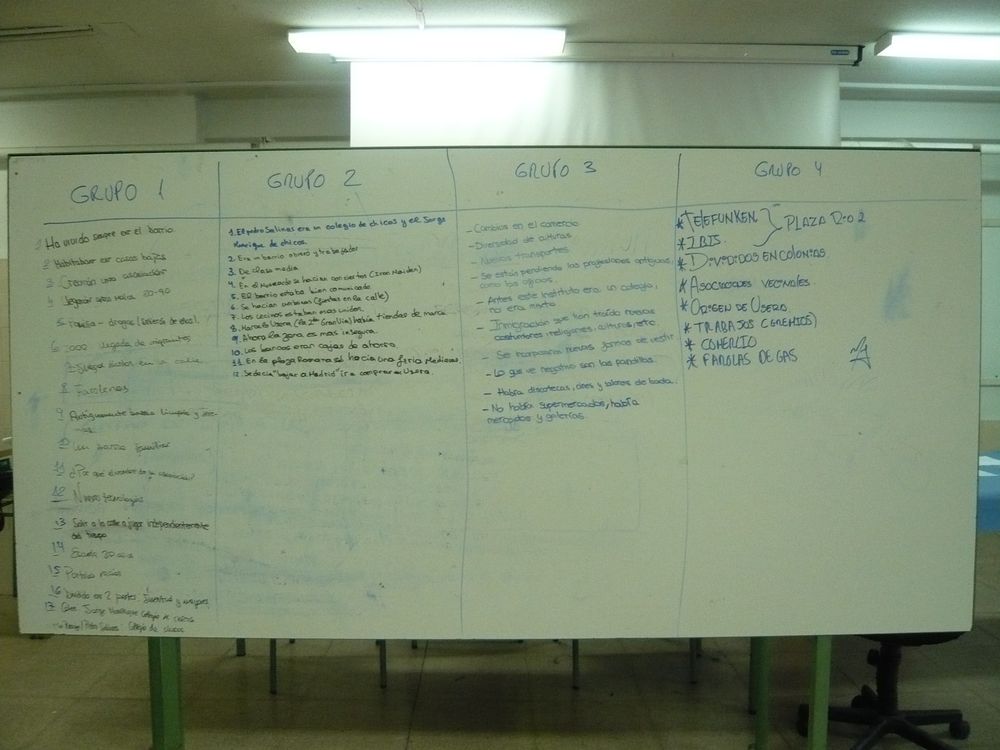 GRUPO 1
1 Ha vivido siempre en el barrio
2 Habitaban en casas bajas
3 una asociación
4
5 - drogas
6 2000 llegada de inmigrantes
7 en calle
8 Farolenas
9 Antiguamente barrio limpio y
10 Un barrio familiar
11 ¿Por qué el nombre de la asociación?
12 Nuevas tecnologías
13 Salir a la calle a jugar independientemente
del tiempo
14 Escuela 20
15
16 Dividido en 2 partes, juventud y mayores
17 Jorge Manrique Colegio de chicos
Pedro Salinas Colegio de chicos
GRUPO 2
1. El pedro Salinas era un colegio de chicas y el Jorge
Manrique de chicos.
2. Era un barrio obrero y trabajador
3. De clase media
4. En el Mercado se hacían conciertos (Iron Maiden)
5. El barrio estaba bien comunicado
6. Se hacían verbenas (fiestas en la calle)
7. Los vecinos estaban más unidos.
8. Marcelo Usera (la 2ª Gran Vía) había tiendas de marca
9. Ahora la zona es más insegura.
10. Los bancos eran cajas de ahorro
11. En la plaza Romana se hacía una feria Medieval.
12. Se decía "bajar a Madrid" ir a comprar en Usera.
GRUPO 3
- Cambios en el comercio
- Diversidad de culturas
- Nuevos transportes
- Se están perdiendo las profesiones antiguas
como los oficios.
- Antes este instituto era un colegio,
no era mixto
- Inmigración que han traído nuevas
costumbres, religiones, culturas, etc.
- Se incorporan nuevas formas de vestir
- Lo que ve negativo son las pandillas.
- Había discotecas, cines y salones de boda.
- No había supermercados, había
mercados y galerías.
GRUPO 4
* TELEFUNKEN } PLAZA R.O 2
* IBIS
* DIVIDIDOS EN COLONIAS
* ASOCIACIONES VECINALES
* ORIGEN DE USERA
* TRABAJOS (GREMIOS)
* COMERCIO
* FAROLAS DE GAS